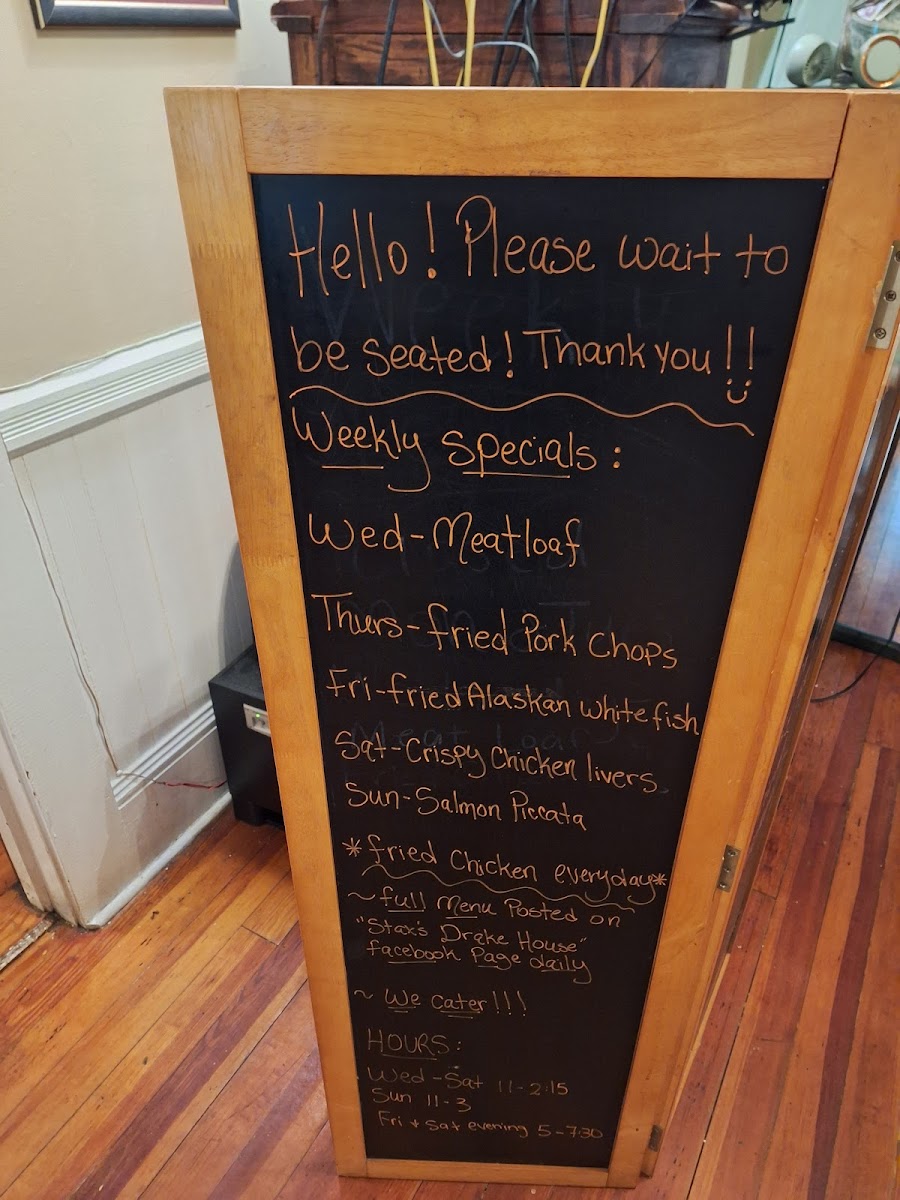 Hello! Please wait to
be seated! Thank you!!
Weekly Specials:
Wed-Meatloaf
Thurs-fried Pork Chops
Fri-fried Alaskan whitefish
Sat-Crispy Chicken livers
Sun-Salmon Piccata
*fried Chicken everyday*
~full Menu Posted on
"Stax's Drake House"
facebook Page daily
~ We cater!!!
HOURS:
Wed-Sat 11-2:15
Sun 11-3
Fri + Sat evening 5-7:30